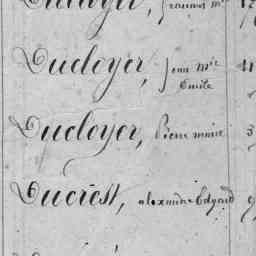 Ducloyer, jean m^ie
Emile
Ducloyer, Pierre marie 3
Ducrest, alexandre Edgard 9